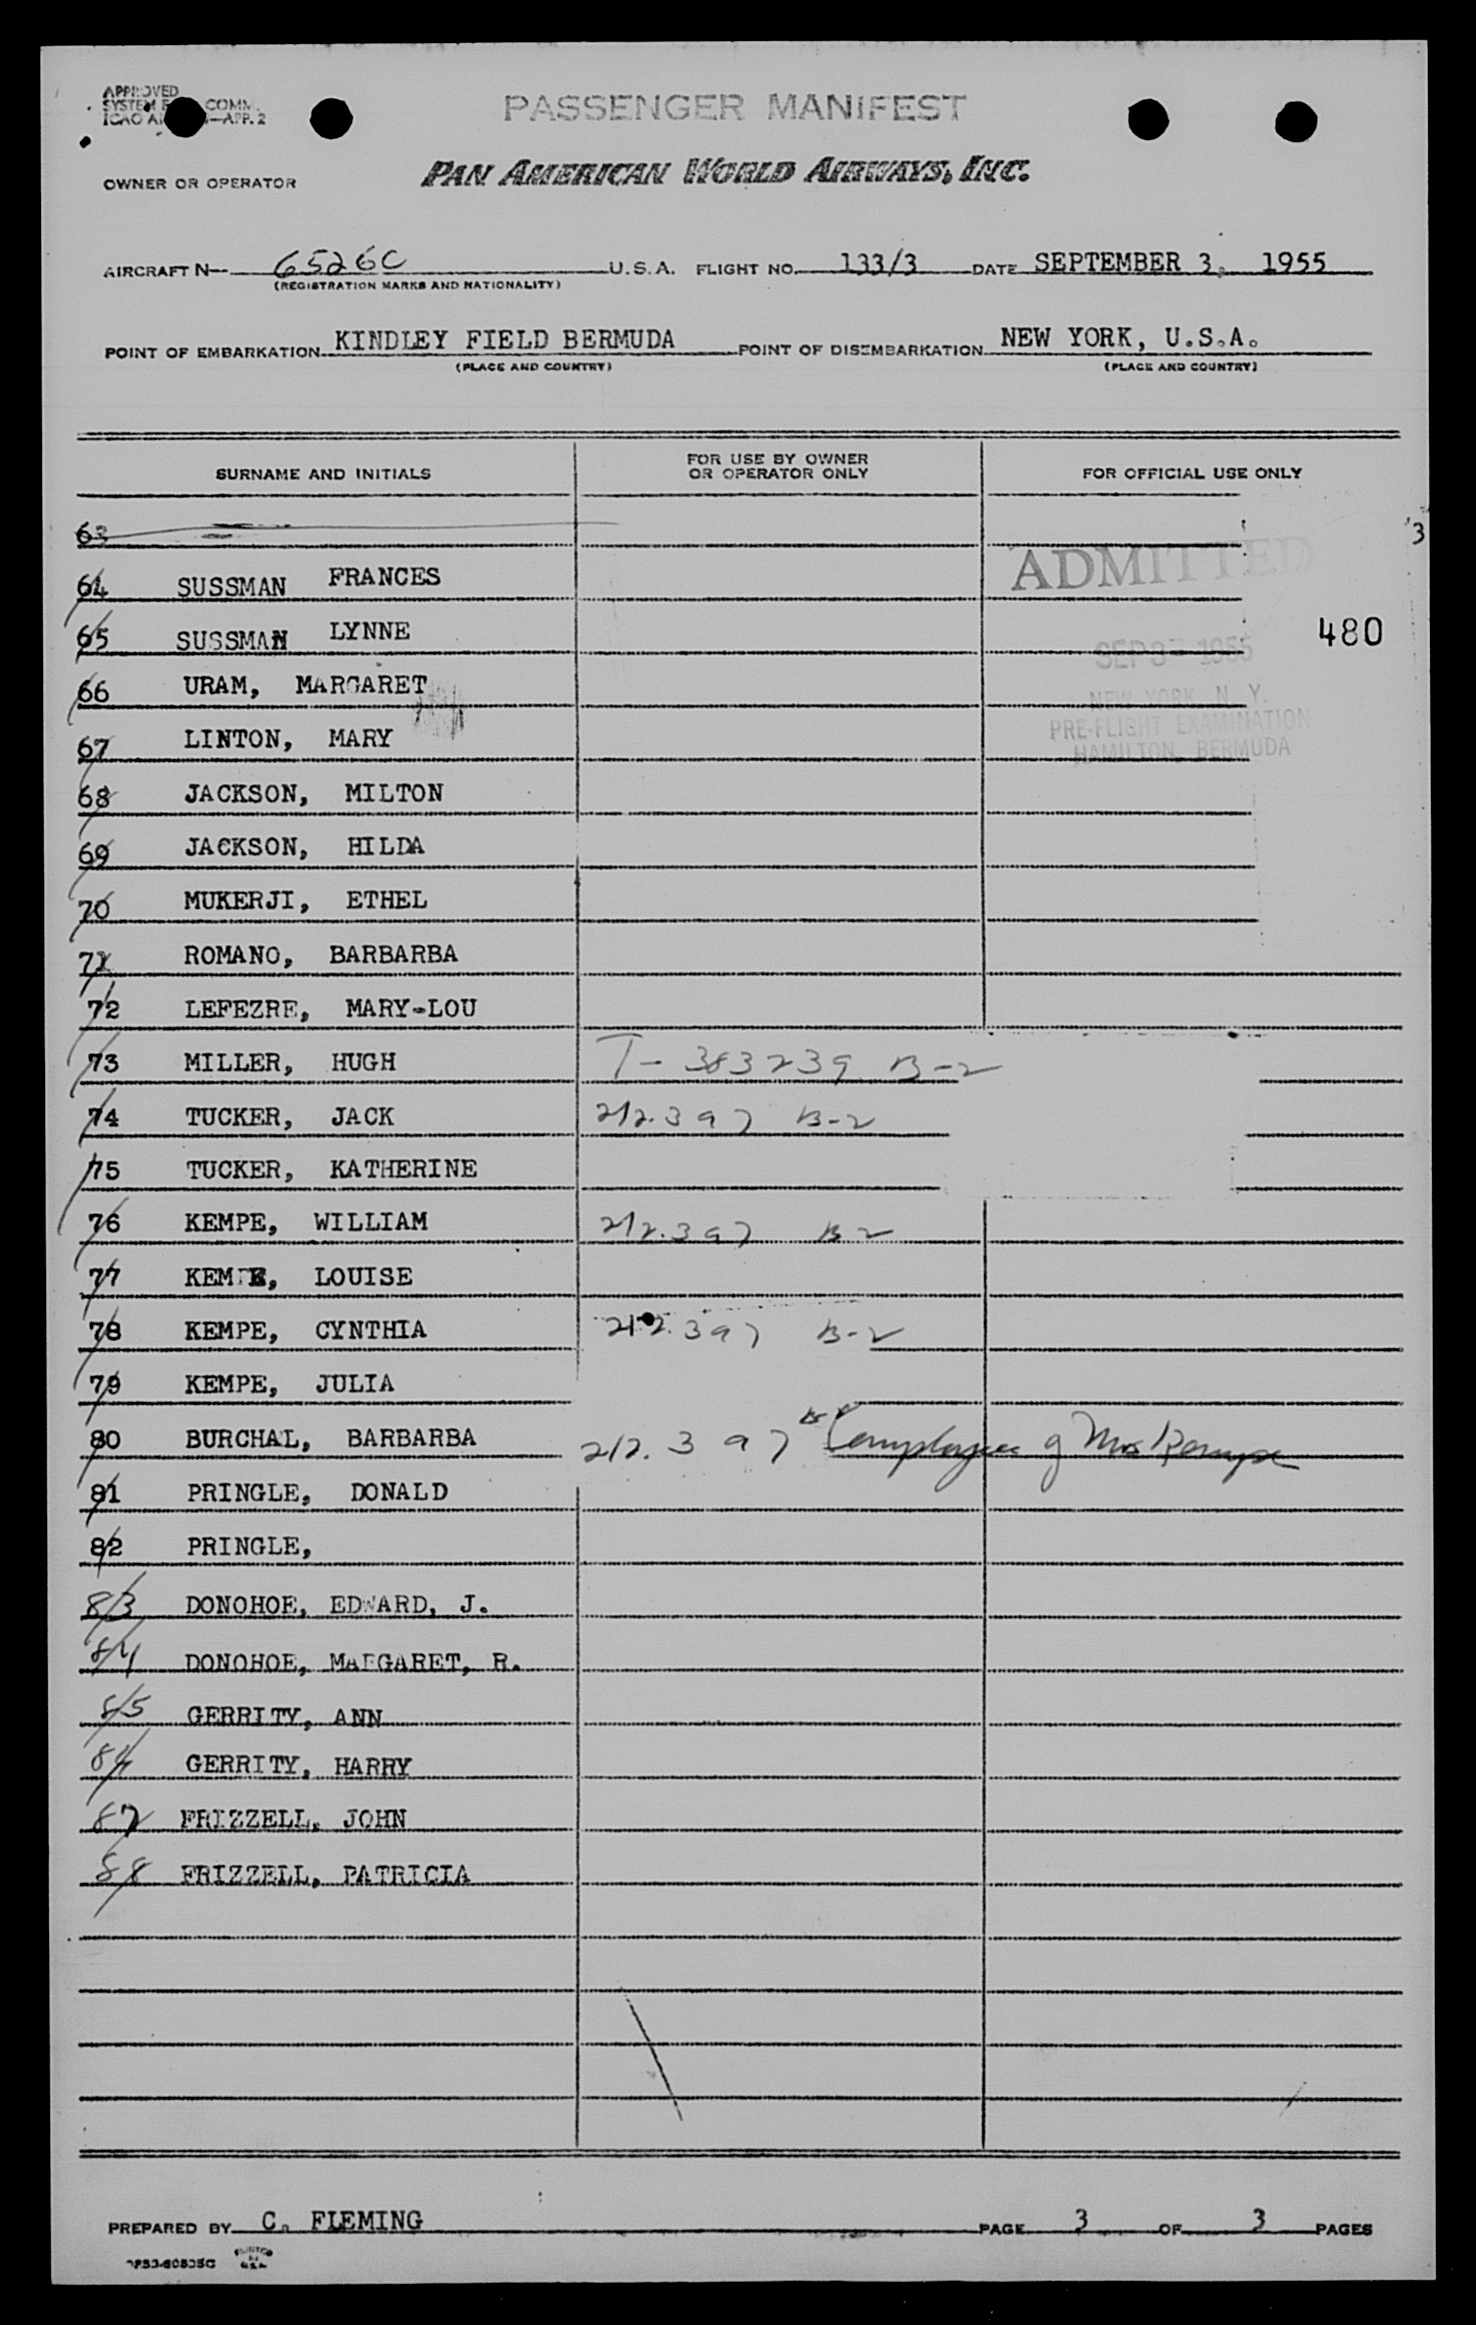 APPROVED
SYSTEM COMM.
ICAO APP. 2
PASSENGER MANIFEST
OWNER OR OPERATOR PAN AMERICAN WORLD AIRWAYS, INC.
AIRCRAFT N— 6526C U.S.A. FLIGHT NO. 133/3 DATE SEPTEMBER 3, 1955
(REGISTRATION MARKS AND NATIONALITY)
POINT OF EMBARKATION KINDLEY FIELD BERMUDA POINT OF DISEMBARKATION NEW YORK, U.S.A.
(PLACE AND COUNTRY) (PLACE AND COUNTRY)
SURNAME AND INITIALS FOR USE BY OWNER OR OPERATOR ONLY FOR OFFICIAL USE ONLY
63 3
ADMITTED
64 SUSSMAN FRANCES
65 SUSSMAN LYNNE 480
SEP 3 - 1955
66 URAM, MARGARET
NEW YORK, N. Y.
PRE-FLIGHT EXAMINATION
67 LINTON, MARY
HAMILTON, BERMUDA
68 JACKSON, MILTON
69 JACKSON, HILDA
70 MUKERJI, ETHEL
71 ROMANO, BARBARBA
72 LEFEZRE, MARY-LOU
73 MILLER, HUGH T-383239 B-2
74 TUCKER, JACK 212.397 B-2
75 TUCKER, KATHERINE
76 KEMPE, WILLIAM 212.397 B2
77 KEMPE, LOUISE
78 KEMPE, CYNTHIA 212.397 B-2
79 KEMPE, JULIA
80 BURCHAL, BARBARBA 212.397 employee of Mrs Kempe
81 PRINGLE, DONALD
82 PRINGLE,
83 DONOHOE, EDWARD, J.
84 DONOHOE, MARGARET, R.
85 GERRITY, ANN
86 GERRITY, HARRY
87 FRIZZELL, JOHN
88 FRIZZELL, PATRICIA
PREPARED BY C. FLEMING PAGE 3 OF 3 PAGES
PRINTED
IN
U.S.A.